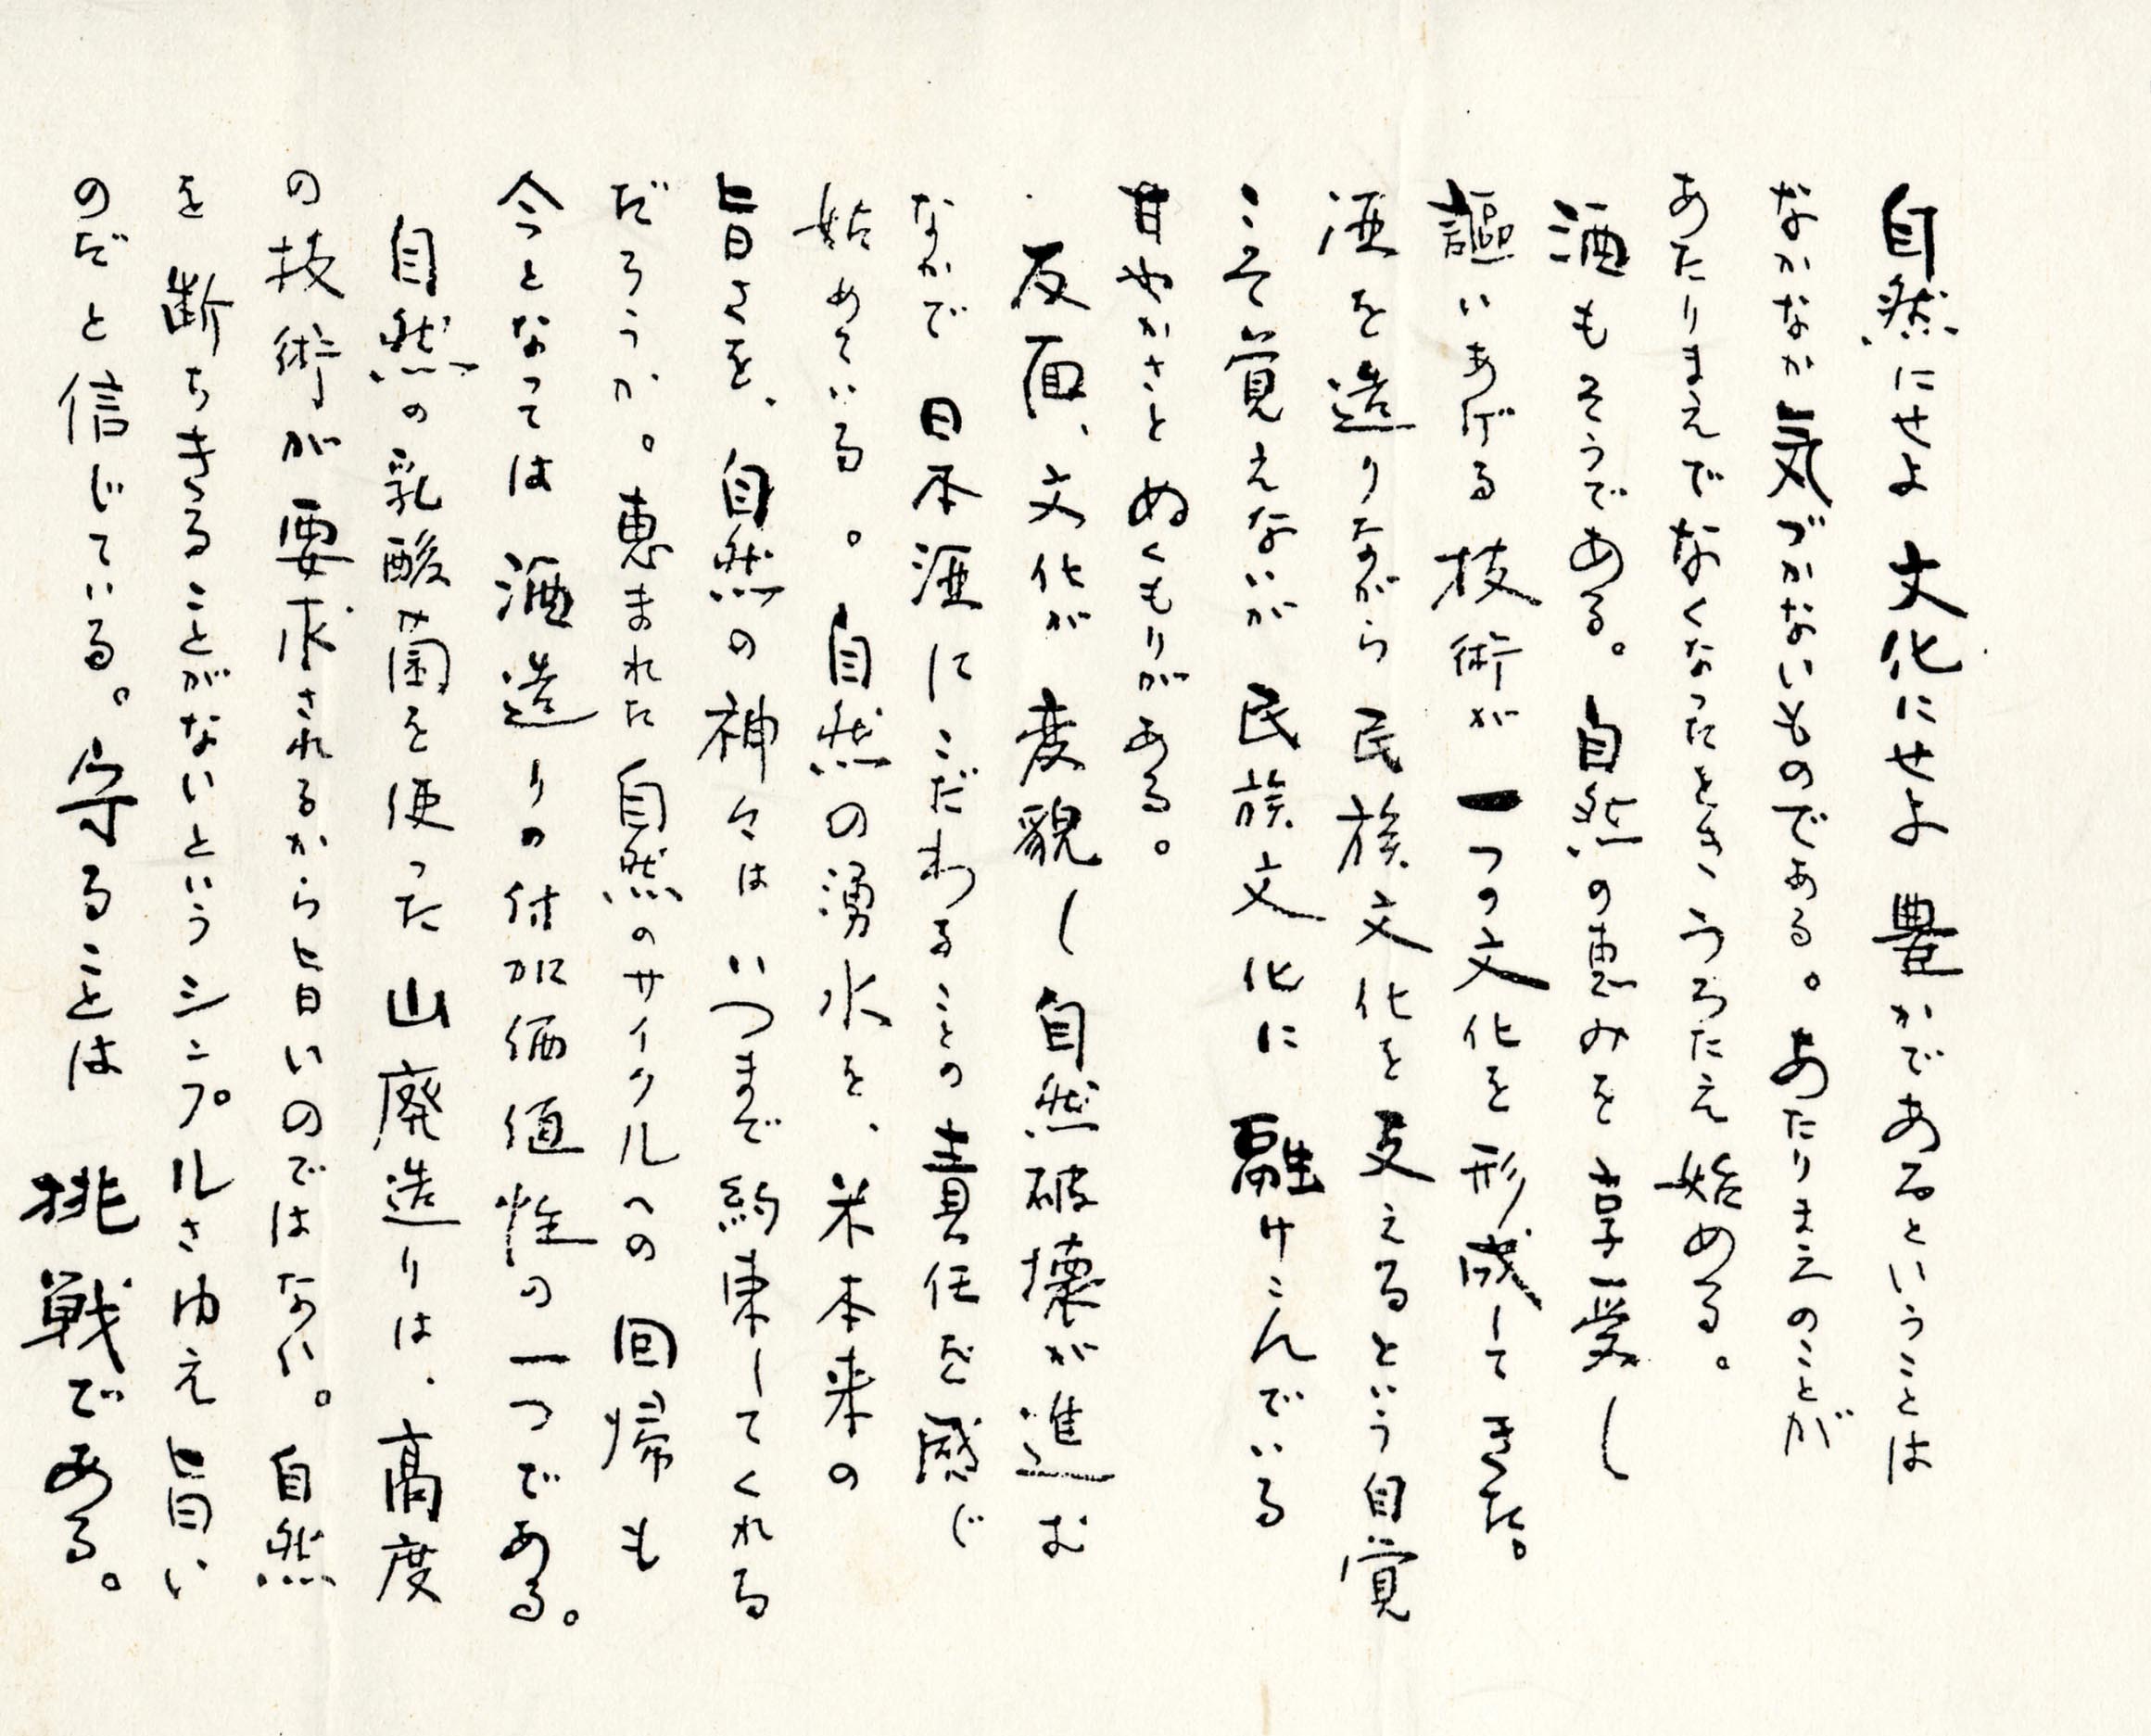 自然にせよ 文化にせよ 豊かであるということは
なかなか気づかないものである。あたりまえのことが
あたりまえでなくなったとき うろたえ始める。
酒もそうである。自然の恵みを享受し
謳いあげる技術が一つの文化を形成してきた。
酒を造りながら民族文化を支えるという自覚
こそ覚えないが 民族文化に融けこんでいる
甘やかさとぬくもりがある。
反面、文化が変貌し自然破壊が進む
なかで日本酒にこだわることの責任を感じ
始めている。自然の湧水を、米本来の
旨さを、自然の神々はいつまで約束してくれる
だろうか。恵まれた自然のサイクルへの回帰も
今となっては酒造りの付加価値性の一つである。
自然の乳酸菌を使った山廃造りは、高度
の技術が要求されるから旨いのではない。自然
を断ちきることがないというシンプルさゆえ旨い
のだと信じている。守ることは 挑戦である。